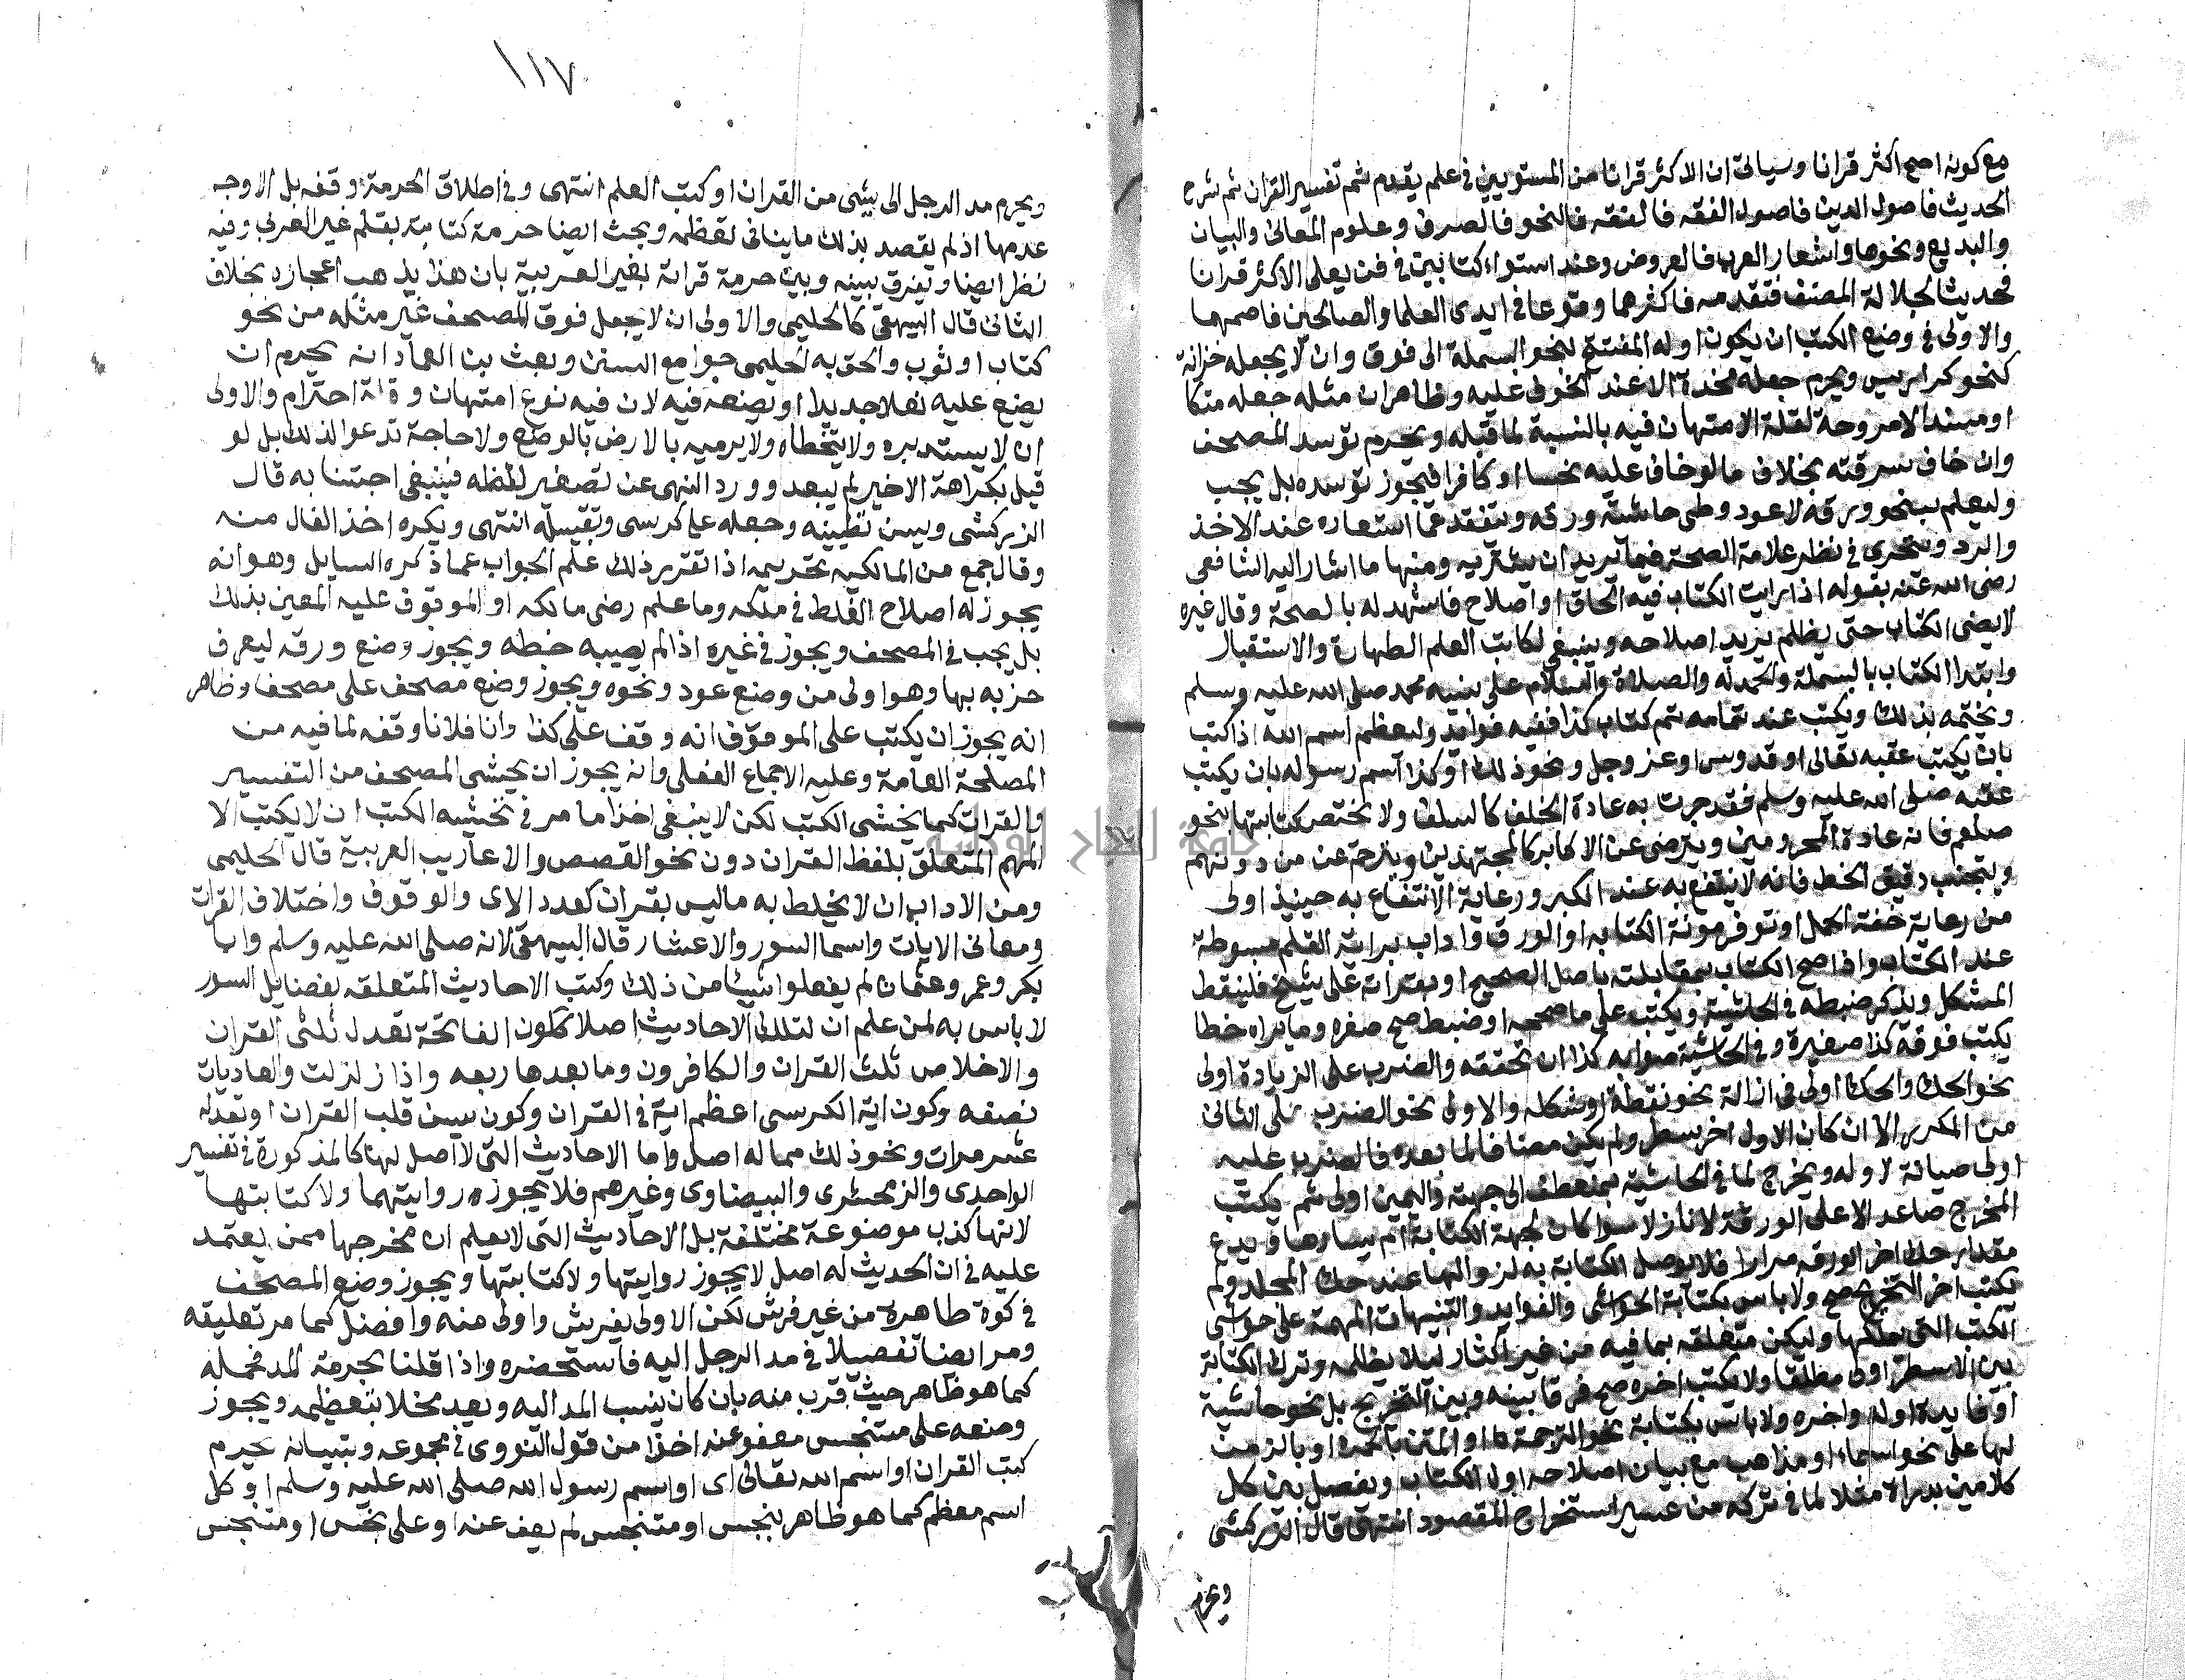 مع كونه اصح اكثر قرانا وسياتى ان الاكثر قرانا من المستويين فى علم يقدم ثم تفسير القران ثم شرح
الحديث فاصول الدين فاصول الفقه فالفقه فالنحو فالصرف وعلوم المعانى والبيان
والبديع ونحوها واشعار العرب فالعروض وعند استواء كتابين فى فن يعلى الاكثر قرانا
فحديثا لجلالة المصنف فتقدمه فاكثرهما وقوعا فى ايدى العلما والصالحين فاصحهما
والاولى فى وضع الكتب ان يكون اوله المفتتح بنحو البسملة الى فوق وان لا يجعله خزانة
لنحو كراريس ويحرم جعله مخدة الا عند الخوف عليه وظاهر ان مثله جعله متكا
او مسندا لا مروحة لقلة الامتهان فيه بالنسبة لما قبله ويحرم توسد المصحف
وان خاف سرقته بخلاف ما لو خاف عليه نجسا او كافرا فيجوز توسده بل يجب
وليعلم بنحو ورقه لا عود وطى حاشية ورقه ويتفقد ما استعاره عند الاخذ
والرد ويتحرى فى نظر علامة الصحة فيما يريد ان يشتريه ومنها ما اشار اليه الشافعى
رضى الله عنه بقوله اذا رايت الكتاب فيه الحاق او اصلاح فاشهد له بالصحة وقال غيره
لا يضئ الكتاب حتى يظلم يريد اصلاحه وينبغى لكاتب العلم الطهارة والاستقبال
وابتدا الكتاب بالبسملة والحمدله والصلاة والسلام على نبيه محمد صلى الله عليه وسلم
ويختمه بذلك ويكتب عند تمامه تم كتاب كذا ففيه فوايد وليعظم اسم الله اذا كتب
بان يكتب عقبه تعالى او قدوس او عز وجل ونحو ذلك وكذا اسم رسوله بان يكتب
عقبه صلى الله عليه وسلم فقد جرت به عادة الخلف كالسلف ولا يختصر كتابتها بنحو
صلعم فانه عادة المحرومين ويترضى عن الاكابر كالمجتهدين ويترحم عن من دونهم
ويتجنب دقيق الخط فانه لا ينتفع به عند الكبر ورعاية الانتفاع به حينيذ اولى
من رعاية خفة الحمل او توفر مونة الكتابه او الورق واداب براية القلم مبسوطة
عند الكتاب واذا صح الكتاب بمقابلته باصل الصحيح او بقراة على شيخ فلينقط
المشكل ويذكر ضبطه فى الحاشية ويكتب على ما صححه او ضبط صح صغره وما يراه خطا
يكتب فوقه كذا صغيرة وفى الحاشية صوابه كذا ان تحققه والضرب على الزيادة اولى
نحو الحك والحك اولى فى ازالة نحو نقطة او شكله والاولى نحو الضرب على الثانى
من المكرر الا ان كان الاول اخر سطر ولم يكن مضافا لما بعده فالضرب عليه
اولى صيانة لاوله ويخرج لما فى الحاشية بمنعطف الى جهته واليمين اولى ثم يكتب
المخرج صاعدا لاعلى الورقة لا نازلا سوا كان لجهة الكتابة ام يسارها ويدع
مقدار حك اخر الورقه مرارا فلا يوصل الكتابة به لزوالها عند حك المجلد ولم
يكتب اخر التخريج صح ولا باس بكتابة الحواشى والفوايد والتنبيهات المهمة على حواشى
الكتب التى يملكها وليكن متعلقه بما فيه من غير اكثار ليلا يظلمه وترك الكتابة
بين الاسطر اولى مطلقا ولا يكتب اخره صح فرقا بينه وبين التخريج بل نحو حاشية
او فايدة اوله واخره ولا باس بكتابة نحو الترجمة او المتن بالحمرة او بالرمز
لها على نحو اسماء او مذاهب مع بيان اصلاحه اول الكتاب ويفصل بين كل
كلامين بدراة مثلا لما فى تركه من عسير استخراج المقصود انتهى قال الزركشى
ويحرم
١١٧
ويحرم مد الرجل الى شى من القران او كتب العلم انتهى وفى اطلاق الحرمة وقفه بل الاوجه
عدمها اذ لم يقصد بذلك ما ينافى تعظيمه وبحث ايضا حرمة كتابته بقلم غير العربى وفيه
نظر ايضا ويفرق بينه وبين حرمة قراته بغير العربية بان هذا يذهب اعجازه بخلاف
الثانى قال البيهقى كالحليمى والاولى ان لا يجعل فوق المصحف غير مثله من نحو
كتاب او ثوب والحق به الحليمى جوامع السنن وبحث بن العماد انه يحرم ان
يضع عليه نعلا جديدا او يضعه فيه لان فيه نوع امتهان وقلة احترام والاولى
ان لا يستدبره ولا يتخطاه ولا يرميه بالارض بالوضع ولا حاجة تدعوا لذلك بل لو
قيل بكراهة الاخير لم يبعد وورد النهى عن تصغير لفظه فينبغى اجتنابه قال
الزركشى ويسن تطييبه وجعله على كرسى وتقبيله انتهى ويكره اخذ الفال منه
وقال جمع من المالكيه بتحريمه اذا تقرر ذلك علم الجواب عما ذكره السايل وهو انه
يجوز له اصلاح الغلط فى ملكه وما علم رضى مالكه او الموقوف عليه المعين بذلك
بل يجب فى المصحف ويجوز فى غيره اذا لم يعيبه خطه ويجوز وضع ورقه ليعرف
حزبه بها وهو اولى من وضع عود ونحوه ويجوز وضع مصحف على مصحف وظاهر
انه يجوز ان يكتب على الموقوف انه وقف على كذا وان فلانا وقفه لما فيه من
المصلحة العامة وعليه الاجماع الفعلى وانه يجوز ان يحشى المصحف من التفسير
والقرات كما يحشى الكتب لكن لا ينبغى اخذا مما مر فى تحشيه الكتب ان لا يكتب الا
المهم المتعلق بلفظ القران دون نحو القصص والاعاريب العربية قال الحليمى
ومن الاداب ان لا يخلط به ما ليس بقران كعدد الاى والوقوف واختلاف القرات
ومعانى الايات واسما السور والاعشار قال البيهقى لانه صلى الله عليه وسلم وابا
بكر وعمر وعثمان لم يفعلوا شيئا من ذلك وكتب الاحاديث المتعلقه بفضايل السور
لا باس به لمن علم ان لتلك الاحاديث اصلا ككون الفاتحة تعدل ثلثى القران
والاخلاص ثلث القران والكافرون وما بعدها ربعه واذا زلزلت والعاديات
نصفه وكون اية الكرسى اعظم اية فى القران وكون يس قلب القران او تعدله
عشر مرات ونحو ذلك مما له اصل واما الاحاديث التى لا اصل لها كالمذكورة فى تفسير
الواحدى والزمخشرى والبيضاوى وغيرهم فلا يجوز روايتهما ولا كتابتها
لانها كذب موضوعة مختلقة بل الاحاديث التى لا يعلم ان مخرجها ممن يعتمد
عليه فى ان الحديث له اصل لا يجوز روايتها ولا كتابتها ويجوز وضع المصحف
فى كوة طاهرة من غير فرش لكن الاولى بفرش واولى منه وافضل كما مر تعليقه
ومر ايضا تفصيلا فى مد الرجل اليه فاستحضره واذا قلنا بحرمة المد فمحله
كما هو ظاهر حيث قرب منه بان كان ينسب المد اليه ويعد مخلا بتعظيمه ويجوز
وضعه على متنجس معفو عنه اخذا من قول النووى فى مجموعه وتبيانه يحرم
كتب القران او اسم الله تعالى اى او اسم رسول الله صلى الله عليه وسلم او كل
اسم معظم كما هو ظاهر بنجس او متنجس لم يعف عنه او على نجس او متنجس